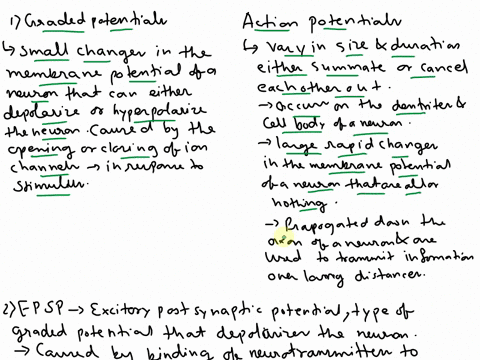 1) Graded potentials
↳ Small changes in the
membrane potential of a
neuron that can either
depolarize or hyperpolarize
the neuron. Caused by the
opening or closing of ion
channels → in response to
stimulus.
Action potentials
↳ Vary in size & duration
either summate or cancel
each other out.
→ Occur on the dendrites &
Cell body of a neuron.
→ large rapid changes
in the membrane potential
of a neuron that are all or
nothing.
→ Propogated down the
axon of a neuron & are
used to transmit information
over long distances.
2) EPSP → Excitory post synaptic potential, type of
graded potential that depolarizes the neuron.
→ Caused by binding of neurotransmitter to